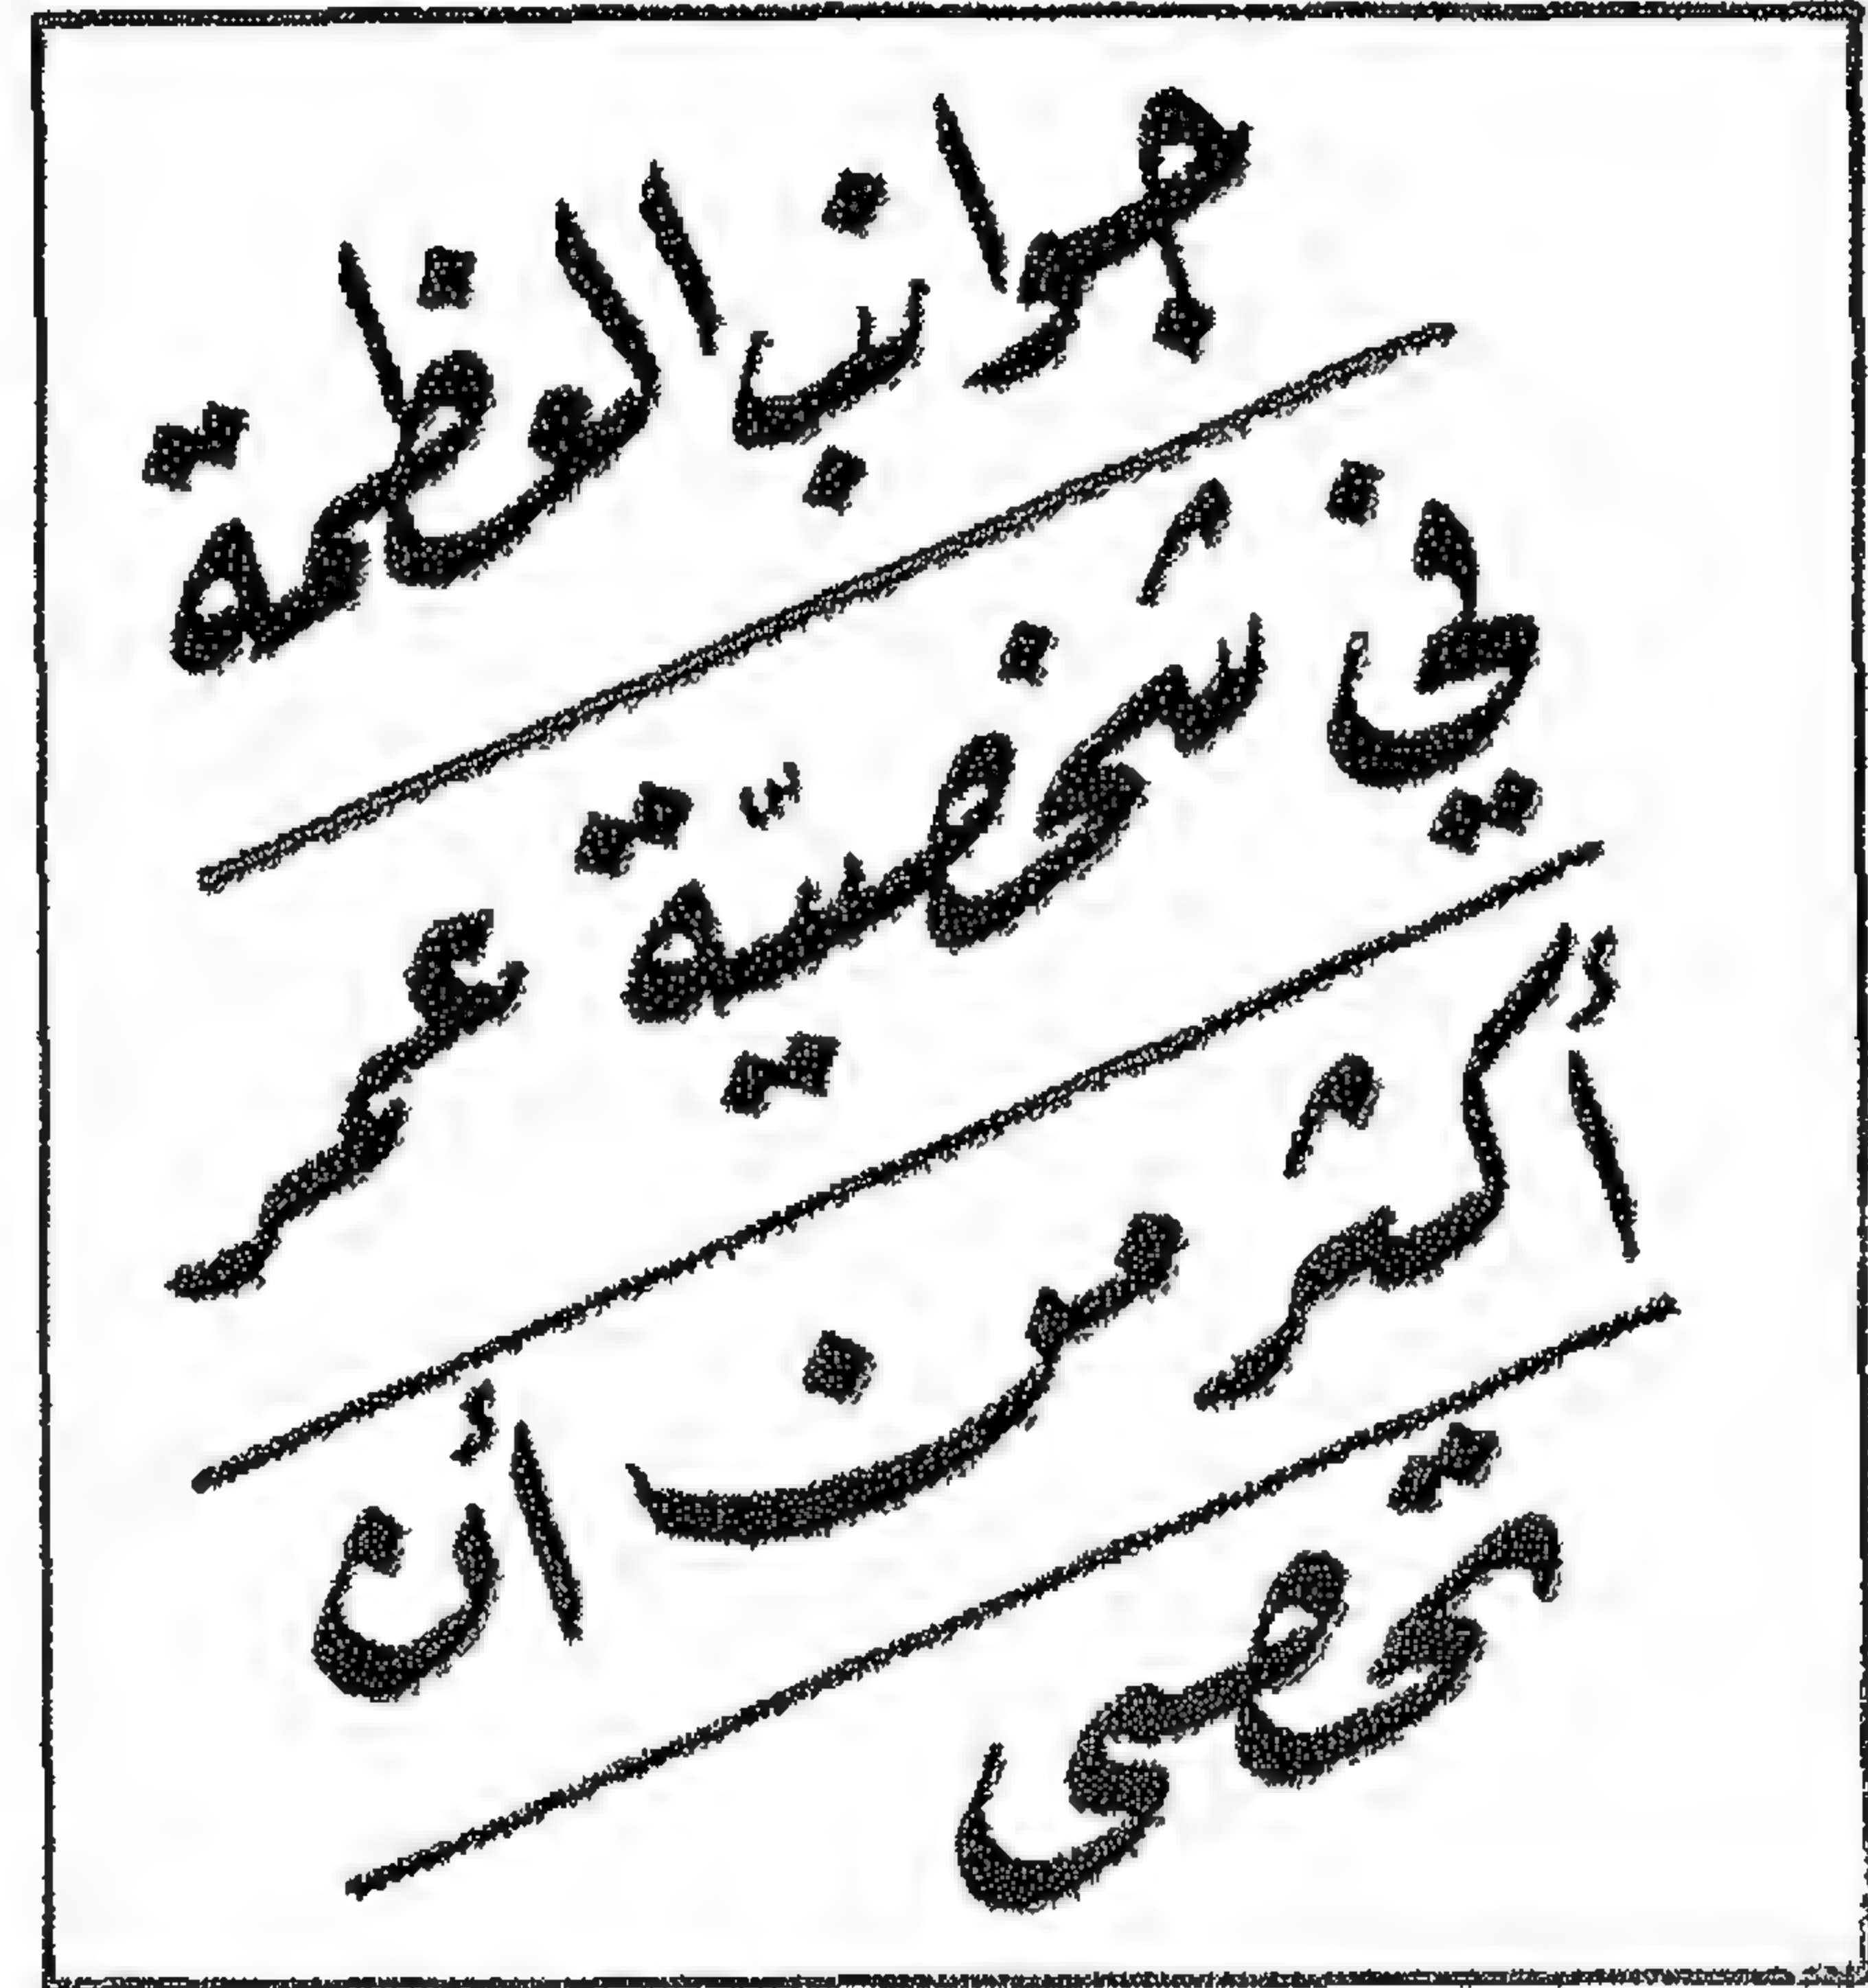 جوانب العظمة
في شخصية عمر
أكثر من أن
تحصى